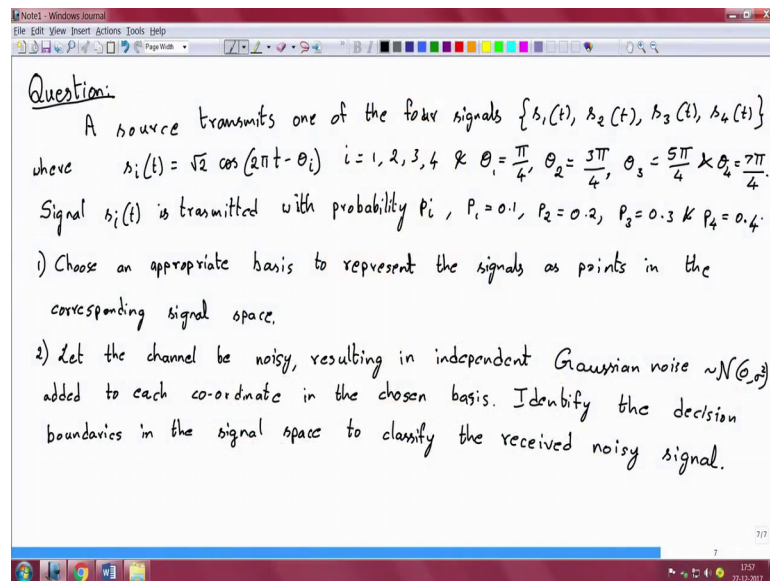 Note1 - Windows Journal
File Edit View Insert Actions Tools Help
Page Width
Question:
A source transmits one of the four signals {s₁(t), s₂(t), s₃(t), s₄(t)}
where s_i(t) = √2 cos (2πt - θ_i) i = 1, 2, 3, 4 & θ₁ = π/4, θ₂ = 3π/4, θ₃ = 5π/4 & θ₄ = 7π/4.
Signal s_i(t) is trasmitted with probability p_i, P₁ = 0.1, P₂ = 0.2, P₃ = 0.3 & P₄ = 0.4.
1) Choose an appropriate basis to represent the signals as points in the
corresponding signal space.
2) Let the channel be noisy, resulting in independent Gaussian noise ~N(0,σ²)
added to each co-ordinate in the chosen basis. Identify the decision
boundaries in the signal space to classify the received noisy signal.
7/7
7
17:57
27-12-2017